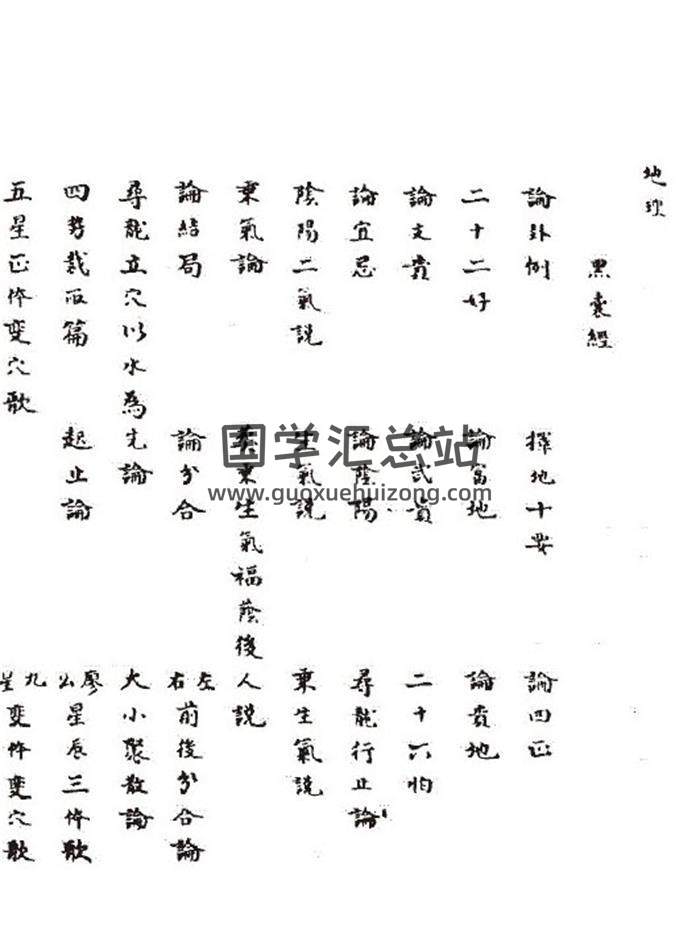 地理
黑囊經
論卦例 擇地十要 論四正
二十二好 論富地 論貴地
論文貴 論武貴 二十六怕
論宜忌 論蔭陽 尋龍行止論
陰陽二氣説 生氣説 乘生氣説
乘氣論 葬乘生氣福蔭後人説
論結局 論分合 左右前後分合論
尋龍立穴以水為先論 大小聚散論
四势裁篇 起止論 廖公星辰三体歌
五星正体變穴歌 九星變体變穴歌
国学汇总站
www.guoxuehuizong.com